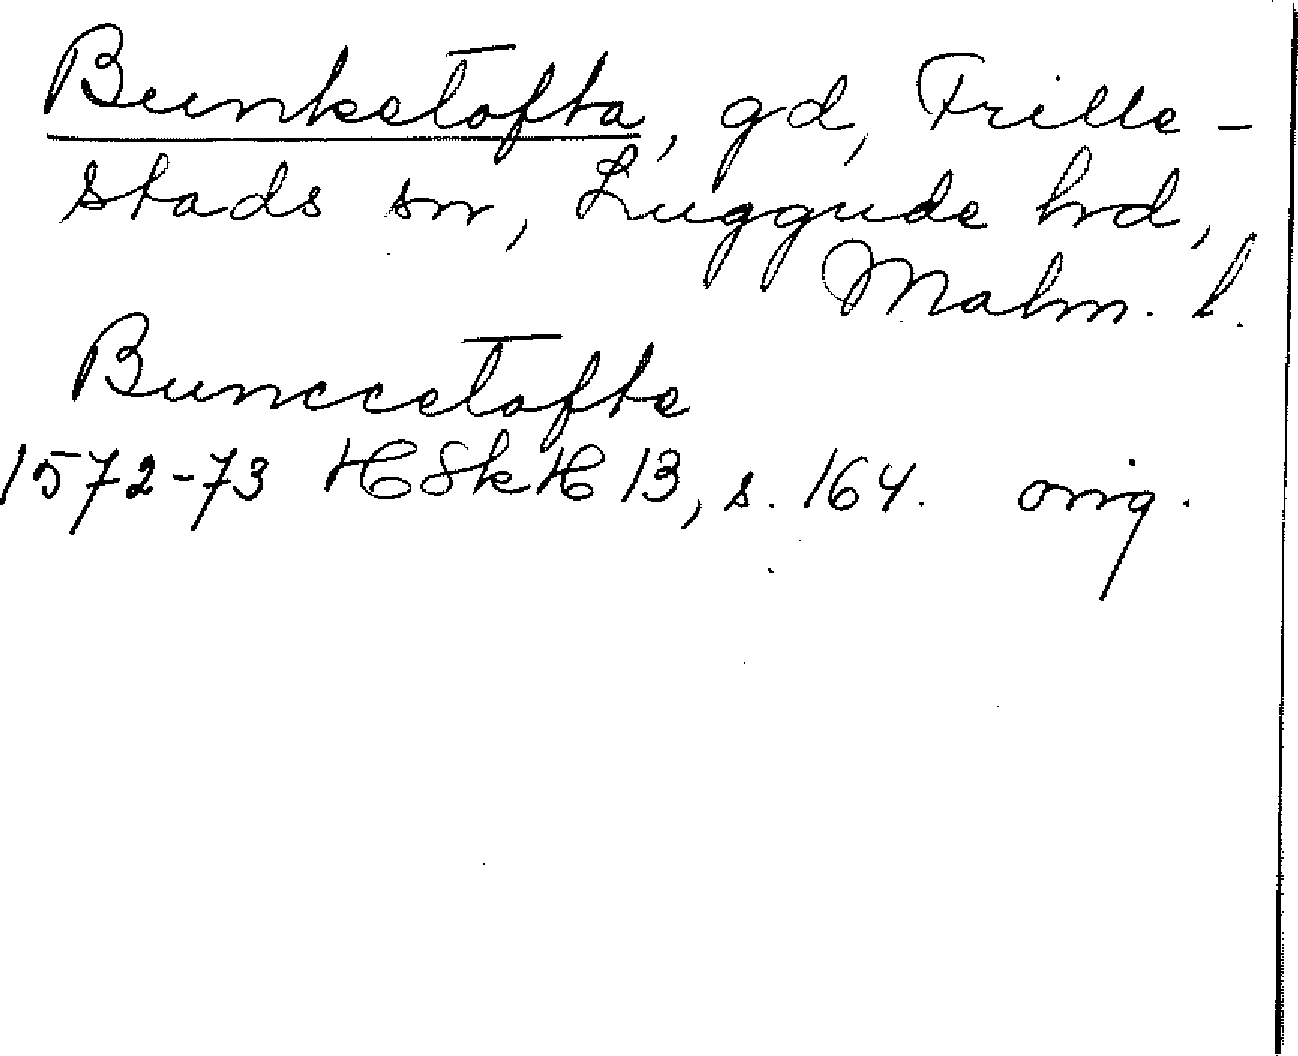 Bunketofta, gd, Frille-
stads sn, Luggude hd,
Malm. l.
Bunccetofte
1572-73 HSkH 13, s. 164. orig.